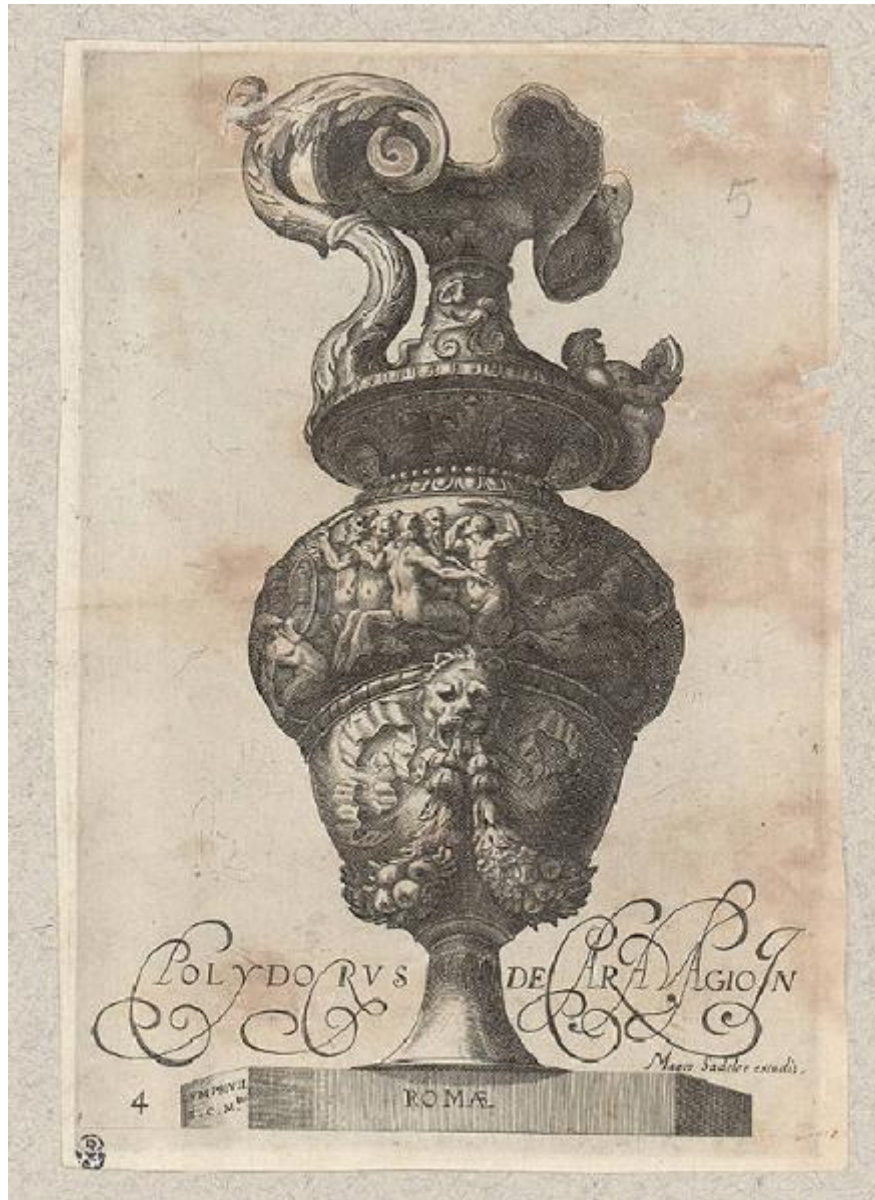 5
POLYDORVS DE CARAVAGIO IN
Marco Sadeler excudit.
4
ROMÆ